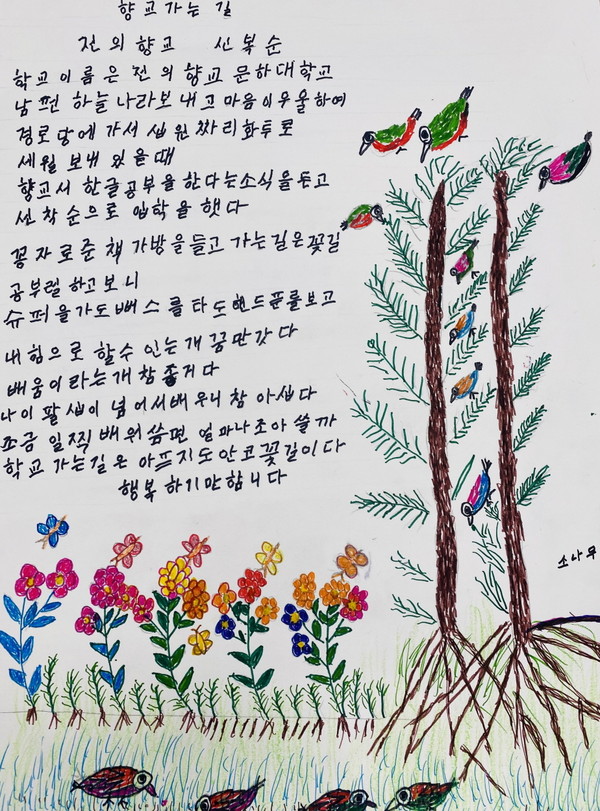 향교가는 길
전의향교 신복순
학교이름은 전의 향교 문하대학교
남편 하늘나라보내고 마음이우울하여
경로당에 가서 십원짜리화투로
세월 보내 있을때
향교서 한글공부을 한다는소식을듣고
선착순으로 입학을 햇다
꽁자로준 책 가방을들고 가는길은꽃길
공부렬 하고보니
슈퍼을가도뻐스를타도핸드푼를보고
내힘으로 할수 인는개 꿈만갓다
배움이라는개참좋거다
나이 팔십이 넘어서배우니 참 아쉽다
조금 일찍 배워쓰면 얼마나조아쓸까
학교 가는길은 아프지도안코꽃길이다
행복하기만합니다
소나무